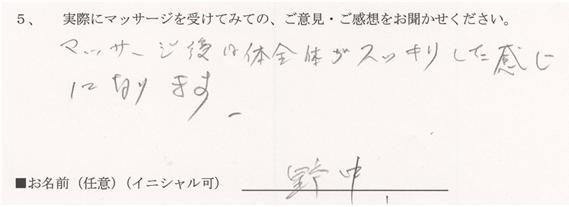 5、 実際にマッサージを受けてみての、ご意見・ご感想をお聞かせください。
マッサージ後は体全体がスッキリした感じ
になります
■お名前（任意）（イニシャル可） 野中